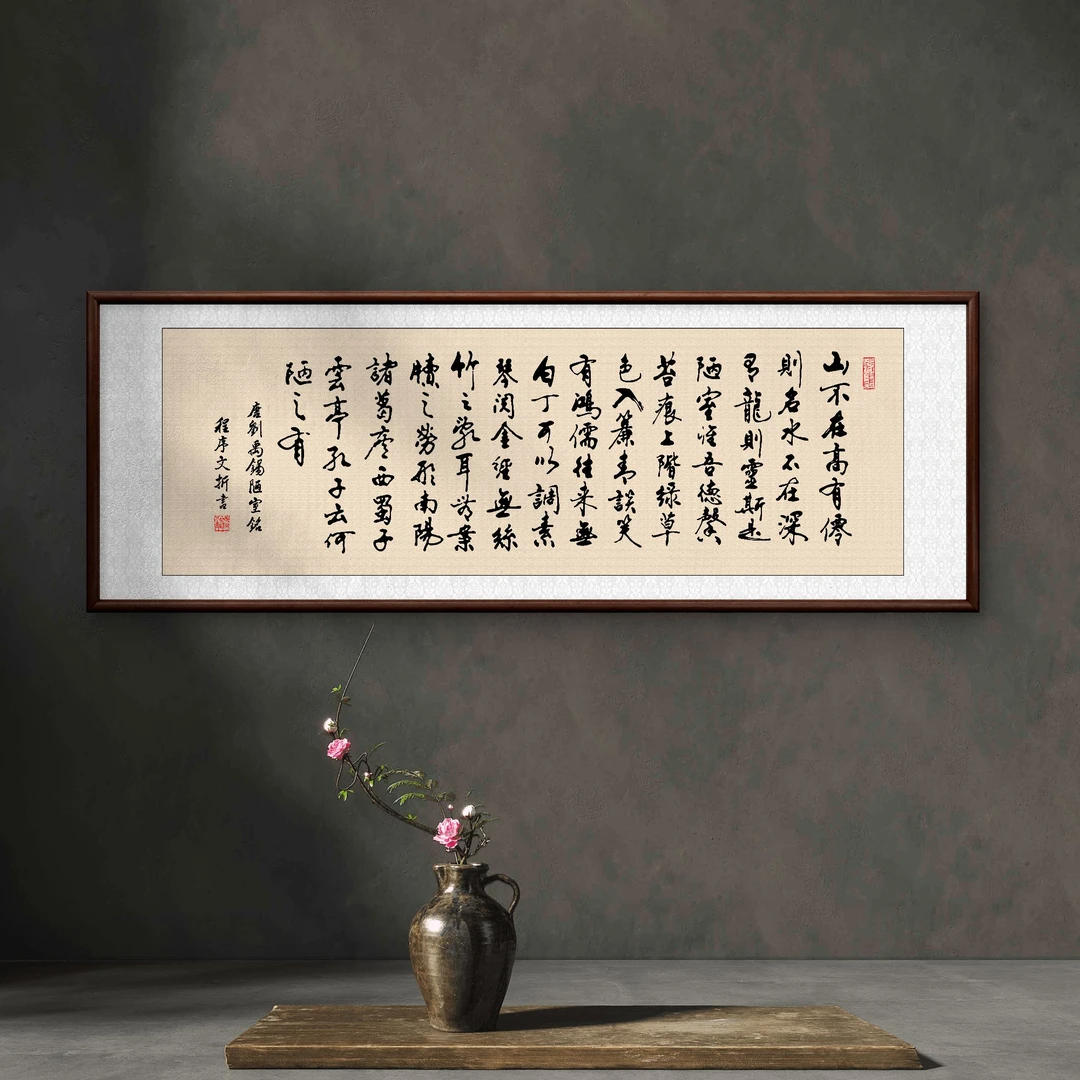 山不在高有僊
則名水不在深
有龍則靈斯是
陋室惟吾德馨
苔痕上階緑草
色入簾青談笑
有鴻儒往来無
白丁可以調素
琴閲金經無絲
竹之亂耳無案
牘之勞形南陽
諸葛廬西蜀子
雲亭孔子云何
陋之有
唐劉禹錫陋室銘
程序文書